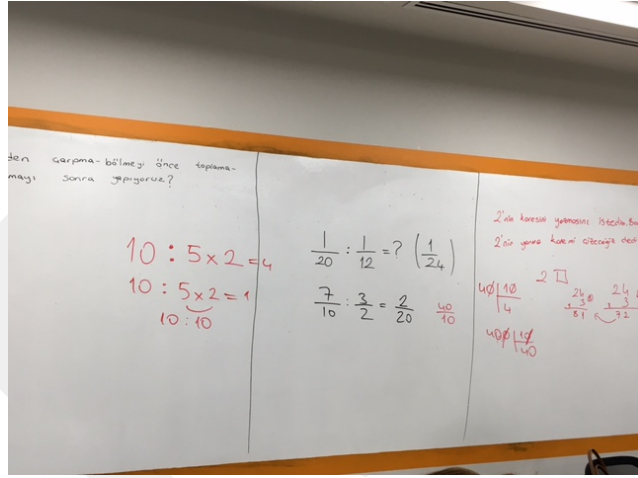 den çarpma-bölmeyi önce toplama-
mayı sonra yapıyoruz?
10 : 5 x 2 = 4
10 : 5 x 2 = 1
10 : 10
1/20 : 1/12 = ? (1/24)
7/10 : 3/2 = 2/20 40/10
2'nin karesini yapmasını istedim.
2'nin yanına kare mi çizeceğiz
2 □
40 | 10
4
24
x 3
81
24
x 3
72
400 | 10
40